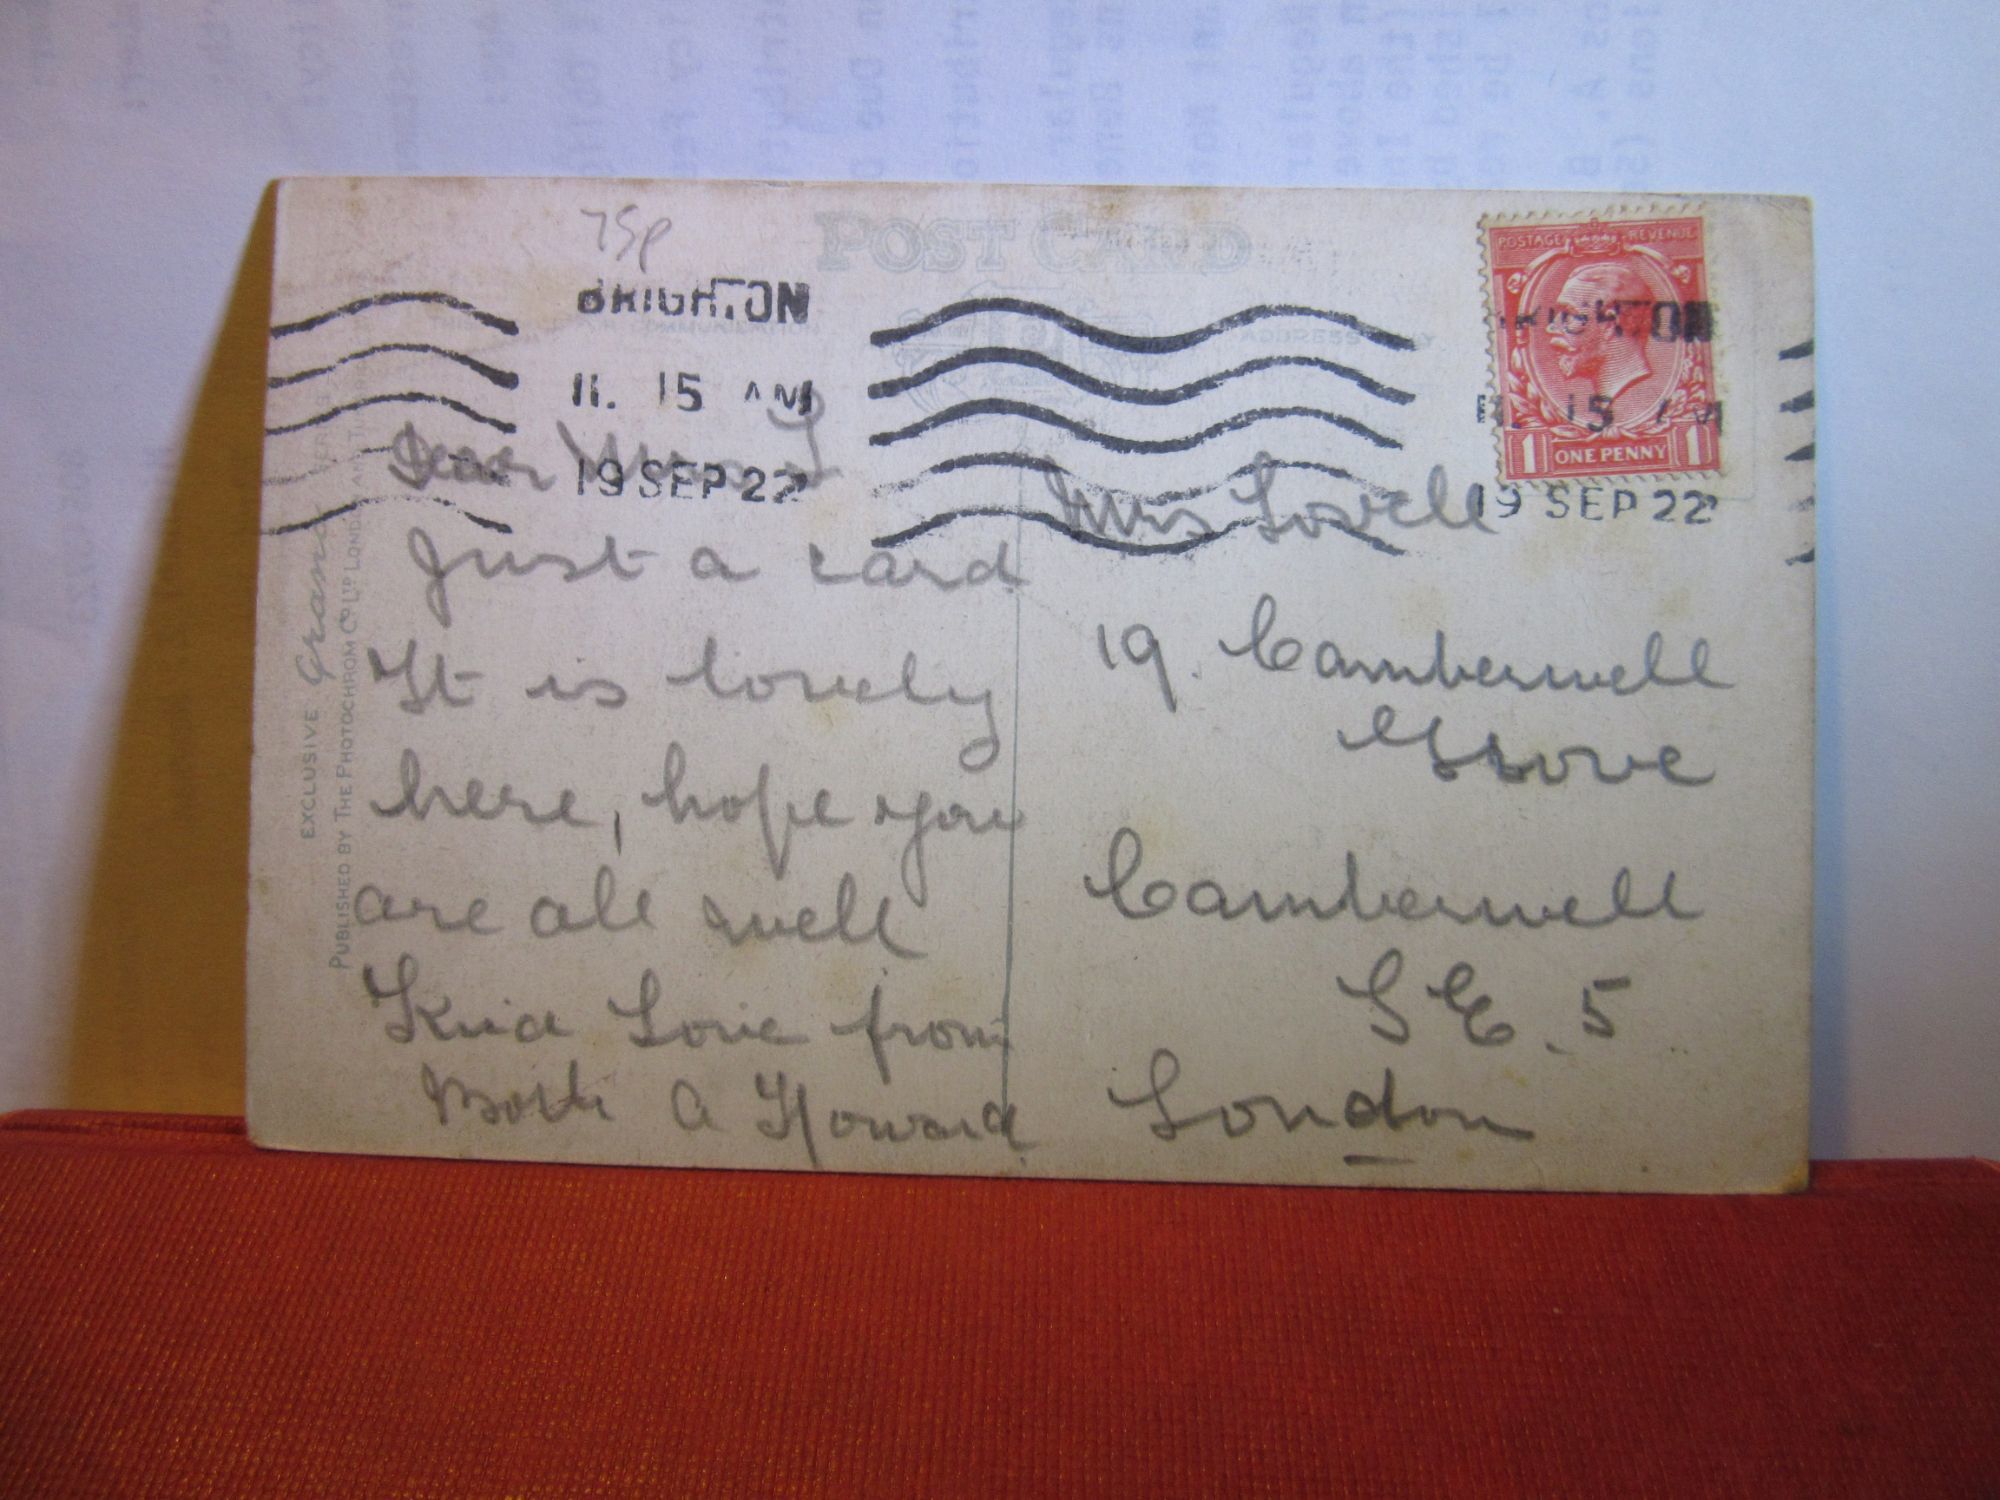 75p
POST CARD
BRIGHTON
11. 15 AM
19 SEP 22
THIS SPACE FOR COMMUNICATION
ADDRESS ONLY
POSTAGE REVENUE
1 ONE PENNY 1
BRIGHTON
11. 15 AM
19 SEP 22
Dear Mrs L
Just a card
It is lovely
here, hope you
are all well
Kind Love from
Both A Howard
Mrs Lovell
19. Camberwell
Grove
Camberwell
S E. 5
London
EXCLUSIVE Grano SERIES
PUBLISHED BY THE PHOTOCHROM CO LTD LONDON AND